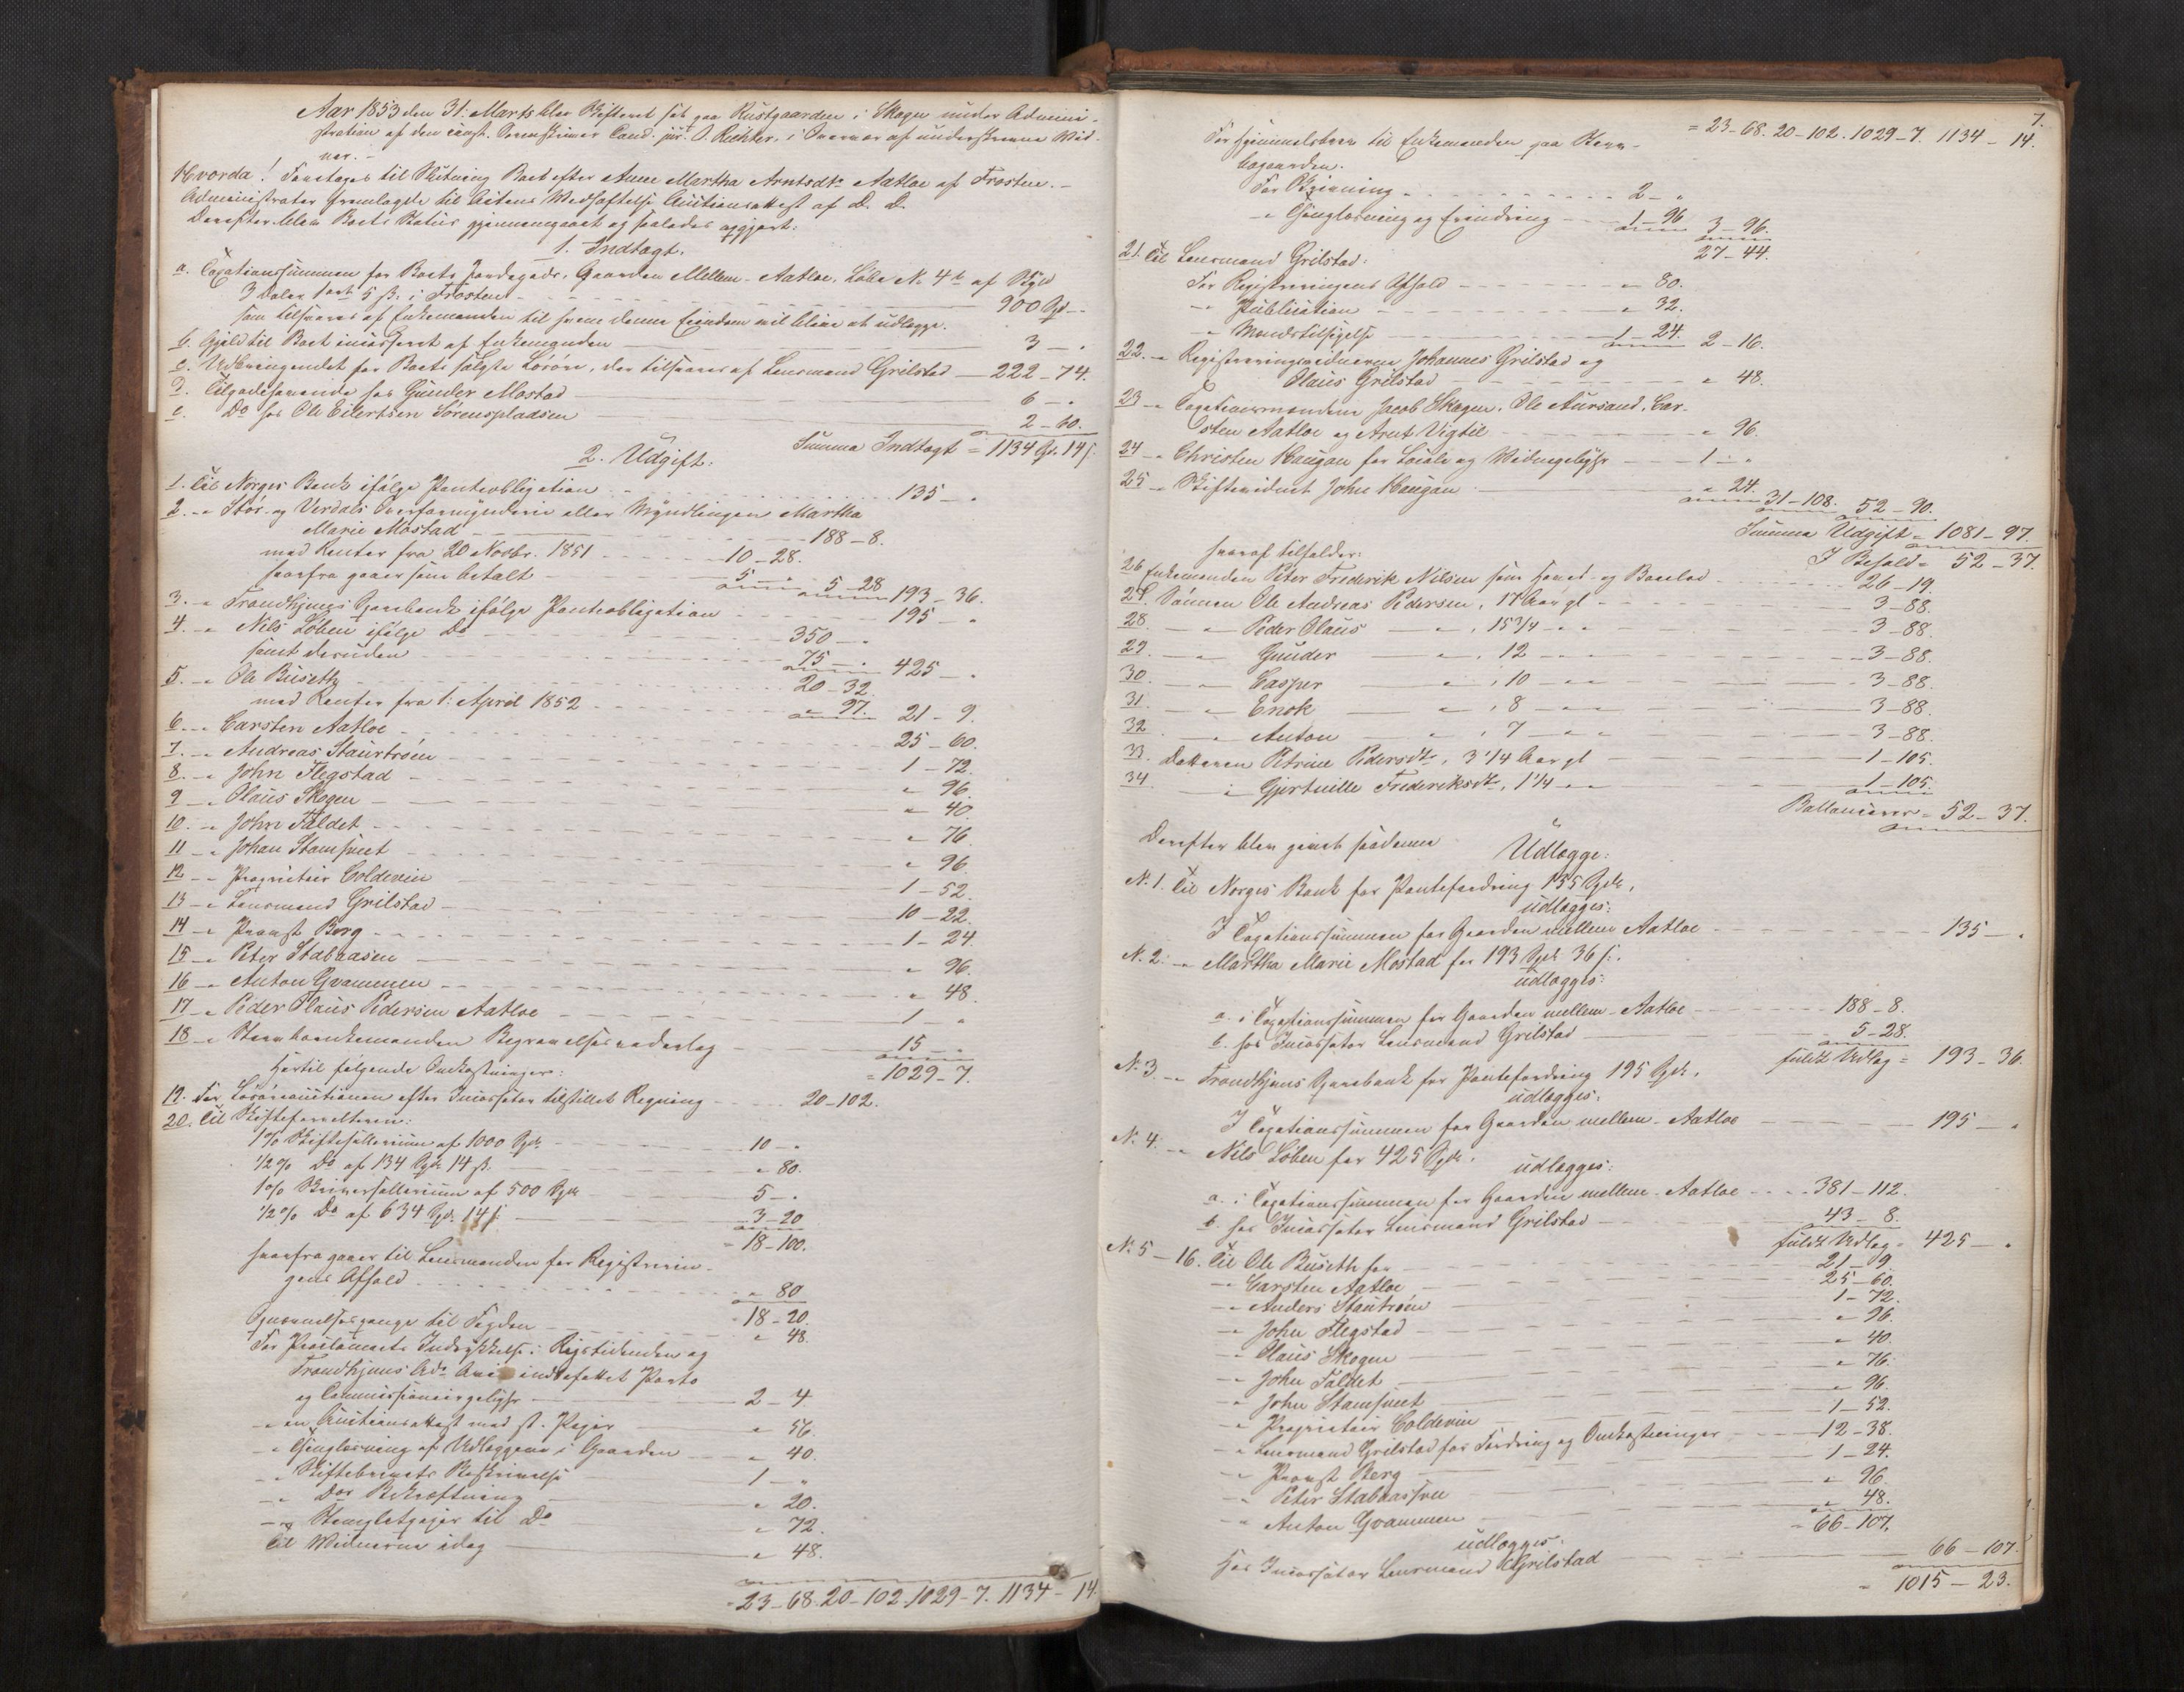 Aar 1853 den 31. Marts blev Skifteret sat paa Rustgaarden i Skogn under Admini-
stration af den const. Sorenskriver Cand. jur. O. Richter, i Overvær af underskrevne Vid-
ner. -
Hvorda! Foretages til Slutning Boet efter Anne Martha Arntsdtr Aatloe af Frosten. -
Administrator fremlagde til Actens Vedhæftelse Auctionsattest af D. D.
Derefter blev Boets Status gjennemgaaet og saaledes opgjort:
1. Indtægt.
a. Taxationssummen for Boets Jordegods, Gaarden Mellem-Aatloe, Løbe No 4b af Skyld
3 Daler 1 ort 5 ß. i Frosten 900 Spd -
som tilsvares af Enkemanden til hvem denne Eiendom vil blive at udlægge.
b. Gjeld til Boet incasseret af Enkemanden 3 - "
c. Udbringendet for Boets solgte Løsøre, der tilsvares af Lensmand Grilstad - 222 - 74.
d. Tilgodehavende hos Gunder Mostad 6 - "
e. Do hos Ole Eilertsen Sørenspladsen 2 - 60.
Summa Indtægt = 1134 Sp. 14 ß.
2. Udgift:
1. Til Norges Bank ifølge Panteobligation 135 - "
2. -" Stør- og Verdals Overformynderie eller Myndlingen Martha
Marie Mostad 188 - 8.
med Renter fra 20 Novbr. 1851 10 - 28.
herfra gaaer som betalt 5 - " 5 - 28 193 - 36.
3. -" Trondhjems Sparebank ifølge Panteobligation 195 - "
4. -" Nils Løben ifølge Do 350 - "
samt desuden 75 - " 425 - "
5. -" Ole Buseth 20 - 32.
med Renter fra 1. April 1852 " 97. 21 - 9.
6. -" Carsten Aatloe 25 - 60.
7. -" Andreas Staurtrøen 1 - 72.
8. -" John Flegstad " 96.
9 -" Olaus Skogen " 40.
10. -" John Faldet " 76.
11 -" Johan Stamhuet " 96.
12 -" Proprietair Coldevin 1 - 52.
13 -" Lensmand Grilstad 10 - 22.
14 -" Provst Berg 1 - 24.
15 -" Peter Stabaasen " 96.
16 -" Anton Gvammen " 48.
17 -" Peder Olaus Pedersen Aatloe 1 - "
18 -" Stervboenkemanden Begravelses vederlag 15 - "
Hertil følgende Omkostninger: = 1029 - 7.
19. For Løsøreauctionen efter Incassator tilstillet Regning 20 - 102.
20. Til Skifteforvalteren:
1% Skiftesallarium af 1000 Spd. 10 - "
1/2% Do af 134 Spd 14 ß. " 80.
1% Skriversallarium af 500 Spd 5 - "
1/2% Do af 634 Spd. 14 ß. 3 - 20
= 18 - 100.
herfra gaaer til Lensmanden for Registrerin-
gens Afhold " 80
18 - 20.
Opnævnelsespenge til Fogden " 48.
For Proclamaets Indrykkelse i Rigstidenden og
Trondhjems Ads. Avis indbefattet Porto
og Commissionairgebyhr 2 - 4
-" en Auctionsattest med st. Papir " 56.
-" Thinglæsning af Udlæggene i Gaarden " 40.
-" Skiftebrevets Beskrivelse 1 - "
-" Dos Bekræftning " 20.
-" Stempletpapir til Do " 72.
Til Vidnerne idag " 48.
= 23 - 68. 20 - 102. 1029 - 7. 1134 - 14.
7.
= 23 - 68. 20 - 102. 1029 - 7. 1134 - 14.
For Hjemmelsbrev til Enkemanden paa Sterv-
bogaarden.
For Skrivning 2 - "
-" Thinglæsning og Erindring 1 - 96 3 - 96.
27 - 44.
21. Til Lensmand Grilstad:
For Registreringens Afhold " 80.
-" Publication " 32.
-" Mandstilsigelse 1 - 24. 2 - 16.
22. -" Registreringsvidnerne Johannes Grilstad og
Olaus Grilstad " 48.
23 -" Taxationsmændene Jacob Skogen, Ole Aursand, Car-
sten Aatloe og Arnt Vigtil " 96.
24 -" Christen Haugan for Locale og Vidnegebyhr 1 - "
25 -" Skiftevidnet John Haugan " 24.
31 - 108. 52 - 90.
Summa Udgift = 1081 - 97.
I Behold = 52 - 37.
hvoraf tilfalder:
26 Enkemanden Peter Frederik Nilsen som Hoved- og Boeslod 26 - 19.
27. Sønnen Ole Andreas Pedersen, 17 Aar gl 3 - 88.
28. -" Peder Olaus -" , 15 3/4 -" " 3 - 88.
29 -" Gunder -" , 12 -" " 3 - 88.
30. -" Casper -" , 10 -" " 3 - 88.
31. -" Enok -" , 8 -" " 3 - 88.
32 -" Anton -" , 7 -" " 3 - 88.
33. Datteren Petrine Pedersdtr, 3 1/4 Aar gl 1 - 105.
34. -" Gjertuille Frederiksdtr, 1 1/4 -" 1 - 105.
Ballancerer = 52 - 37.
Derefter blev gjort saadanne
Udlægge:
No 1. Til Norges Bank for Pantefordring 135 Spd,
udlægges:
I Taxationssummen for Gaarden mellem Aatloe 135 - "
No 2. -" Martha Marie Mostad for 193 Spd 36 ß.
udlægges:
a. i Taxationssummen for Gaarden mellem-Aatloe 188 - 8.
b. hos Incassator Lensmand Grilstad 5 - 28.
fuldt Udlæg = 193 - 36.
No 3. -" Trondhjems Sparebank for Pantefordring 195 Spd.
udlægges:
I Taxationssummen for Gaarden mellem-Aatloe 195 - "
No 4. -" Nils Løben for 425 Spd.
udlægges:
a. i Taxationssummen for Gaarden mellem-Aatloe 381 - 112.
b. hos Incassator Lensmand Grilstad 43 - 8.
fuldt Udlæg = 425 - "
No 5 - 16. Til Ole Buseth for 21 - 9.
-" Carsten Aatloe 25 - 60.
-" Anders Stautrøen 1 - 72.
-" John Flegstad " 96.
-" Olaus Skogen " 40.
-" John Faldet " 76.
-" John Stamhuet " 96.
-" Proprietair Coldevin 1 - 52.
-" Lensmand Grilstad for Fordring og Omkostninger 12 - 38.
-" Provst Berg 1 - 24.
-" Peter Stabaasen " 96.
-" Anton Gvammen " 48.
= 66 - 107.
udlægges:
Hos Incassator Lensmand Grilstad 66 - 107.
= 1015 - 23.